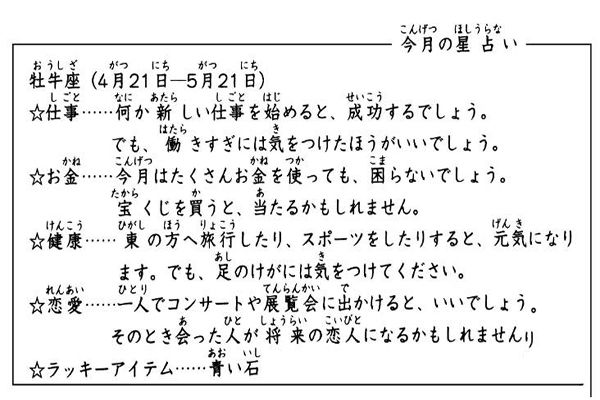 今月の星占い
牡牛座（4月21日―5月21日）
☆仕事……何か新しい仕事を始めると、成功するでしょう。
でも、働きすぎには気をつけたほうがいいでしょう。
☆お金……今月はたくさんお金を使っても、困らないでしょう。
宝くじを買うと、当たるかもしれません。
☆健康……東の方へ旅行したり、スポーツをしたりすると、元気になり
ます。でも、足のけがには気をつけてください。
☆恋愛……一人でコンサートや展覧会に出かけると、いいでしょう。
そのとき会った人が将来の恋人になるかもしれませんり
☆ラッキーアイテム……青い石